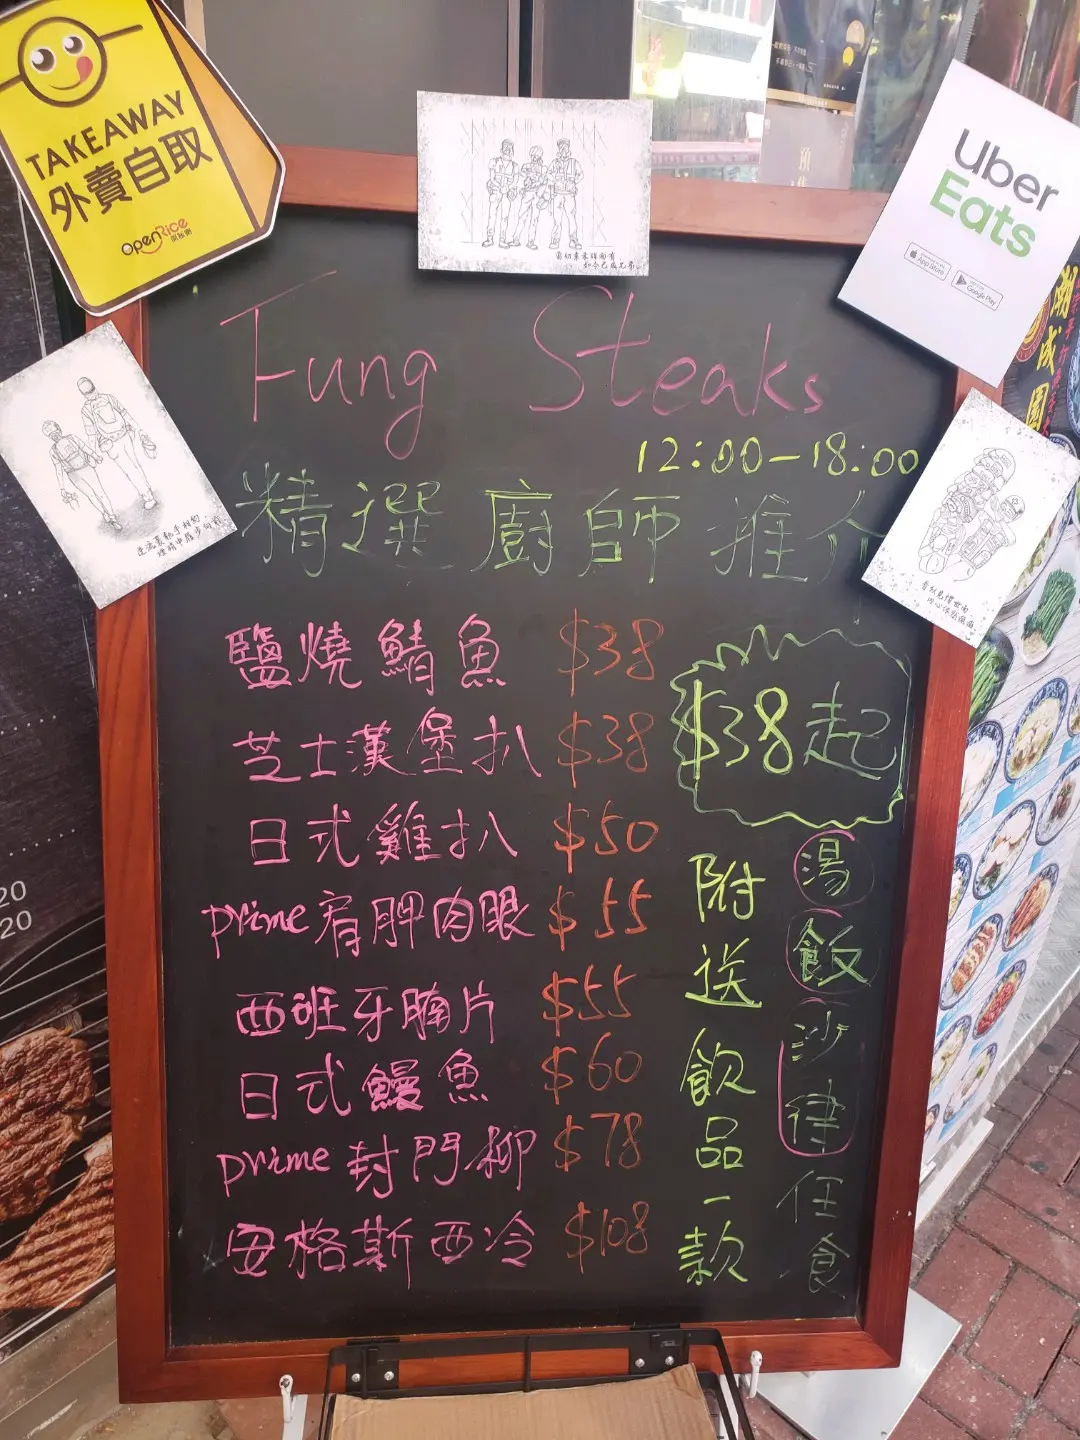 TAKEAWAY
外賣自取
OpenRice
Uber
Eats
App Store
Google Play
Fung Steaks
12:00-18:00
精選廚師推介
鹽燒鯖魚 $38
芝士漢堡扒 $38
日式雞扒 $50
prime肩胛肉眼 $55
西班牙腩片 $55
日式鰻魚 $60
prime封門柳 $78
安格斯西冷 $108
$38起
湯飯沙律任食
附送飲品一款
潮成園
20
20